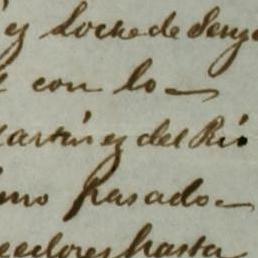 y Locke de Seng
con lo
artin y del Rio
mo pasado
eedores hasta